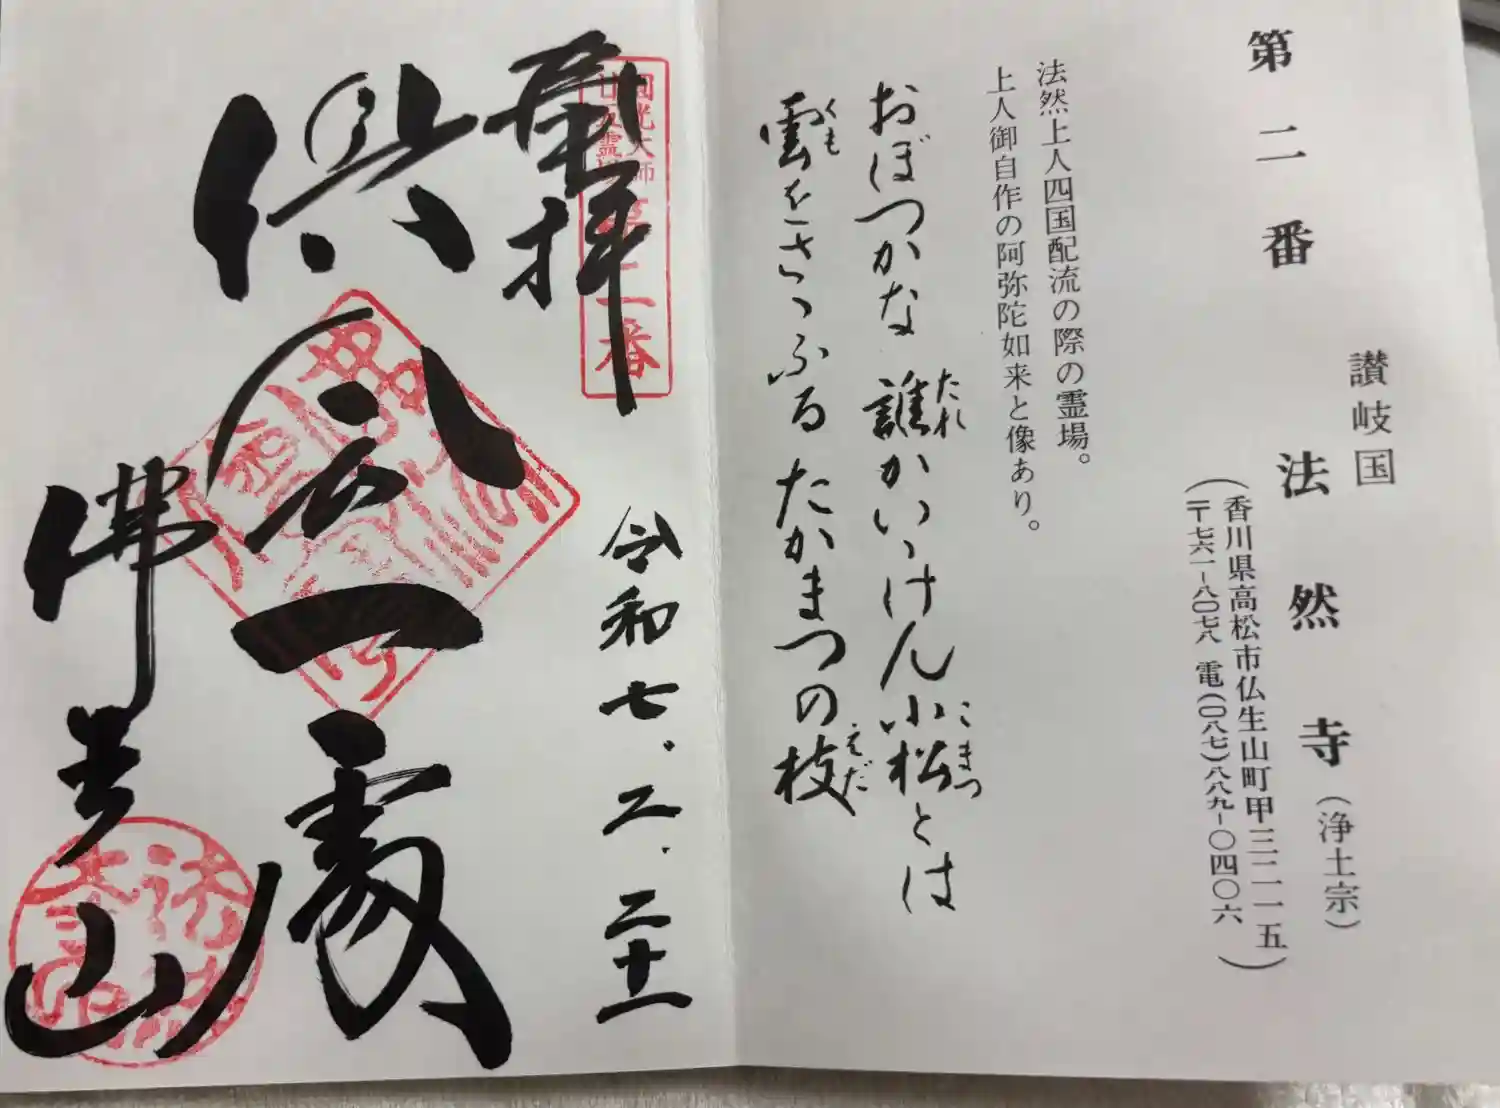 第二番
讃岐国
法然寺(浄土宗)
(香川県高松市仏生山町甲三二一五)
〒七六一-八〇七八 電(〇八七)八八九-〇四〇六
法然上人四国配流の際の霊場。
上人御自作の阿弥陀如来と像あり。
おぼつかな 誰かいゝけん小松とは
たれ
こまつ
雲をさゝふる たかまつの枝
くも
えだ
圓光大師
廿五霊場
第二番
奉拝
令和七.二.二十一
倶会一處
佛生山